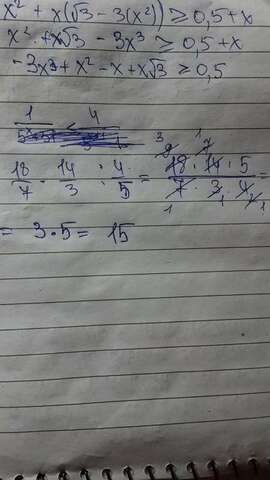 x² + x(√3 - 3(x²)) ≥ 0,5+x
x² + x√3 - 3x³ ≥ 0,5+x
-3x³ + x² - x + x√3 ≥ 0,5
1 < 4
18/7 · 14/3 : 4/5 = 18 · 14 · 5 / 7 · 3 · 4 =
= 3·5 = 15